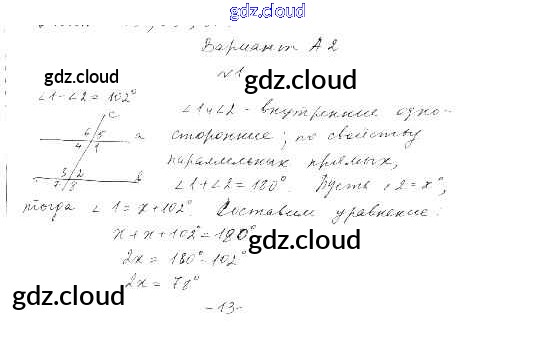 gdz.cloud
Вариант А2
№1
gdz.cloud
gdz.cloud
∠1-∠2=102°
c
6 5
a
4 1
3 2
b
7 8
∠1 и ∠2 - внутренние одно-
сторонние; по свойству
параллельных прямых,
∠1+∠2=180°. Пусть ∠2=x°,
тогда ∠1=x+102°. Составим уравнение:
x+x+102°=180°
gdz.cloud
2x=180°-102°
2x=78°
gdz.cloud
gdz.cloud
-13-